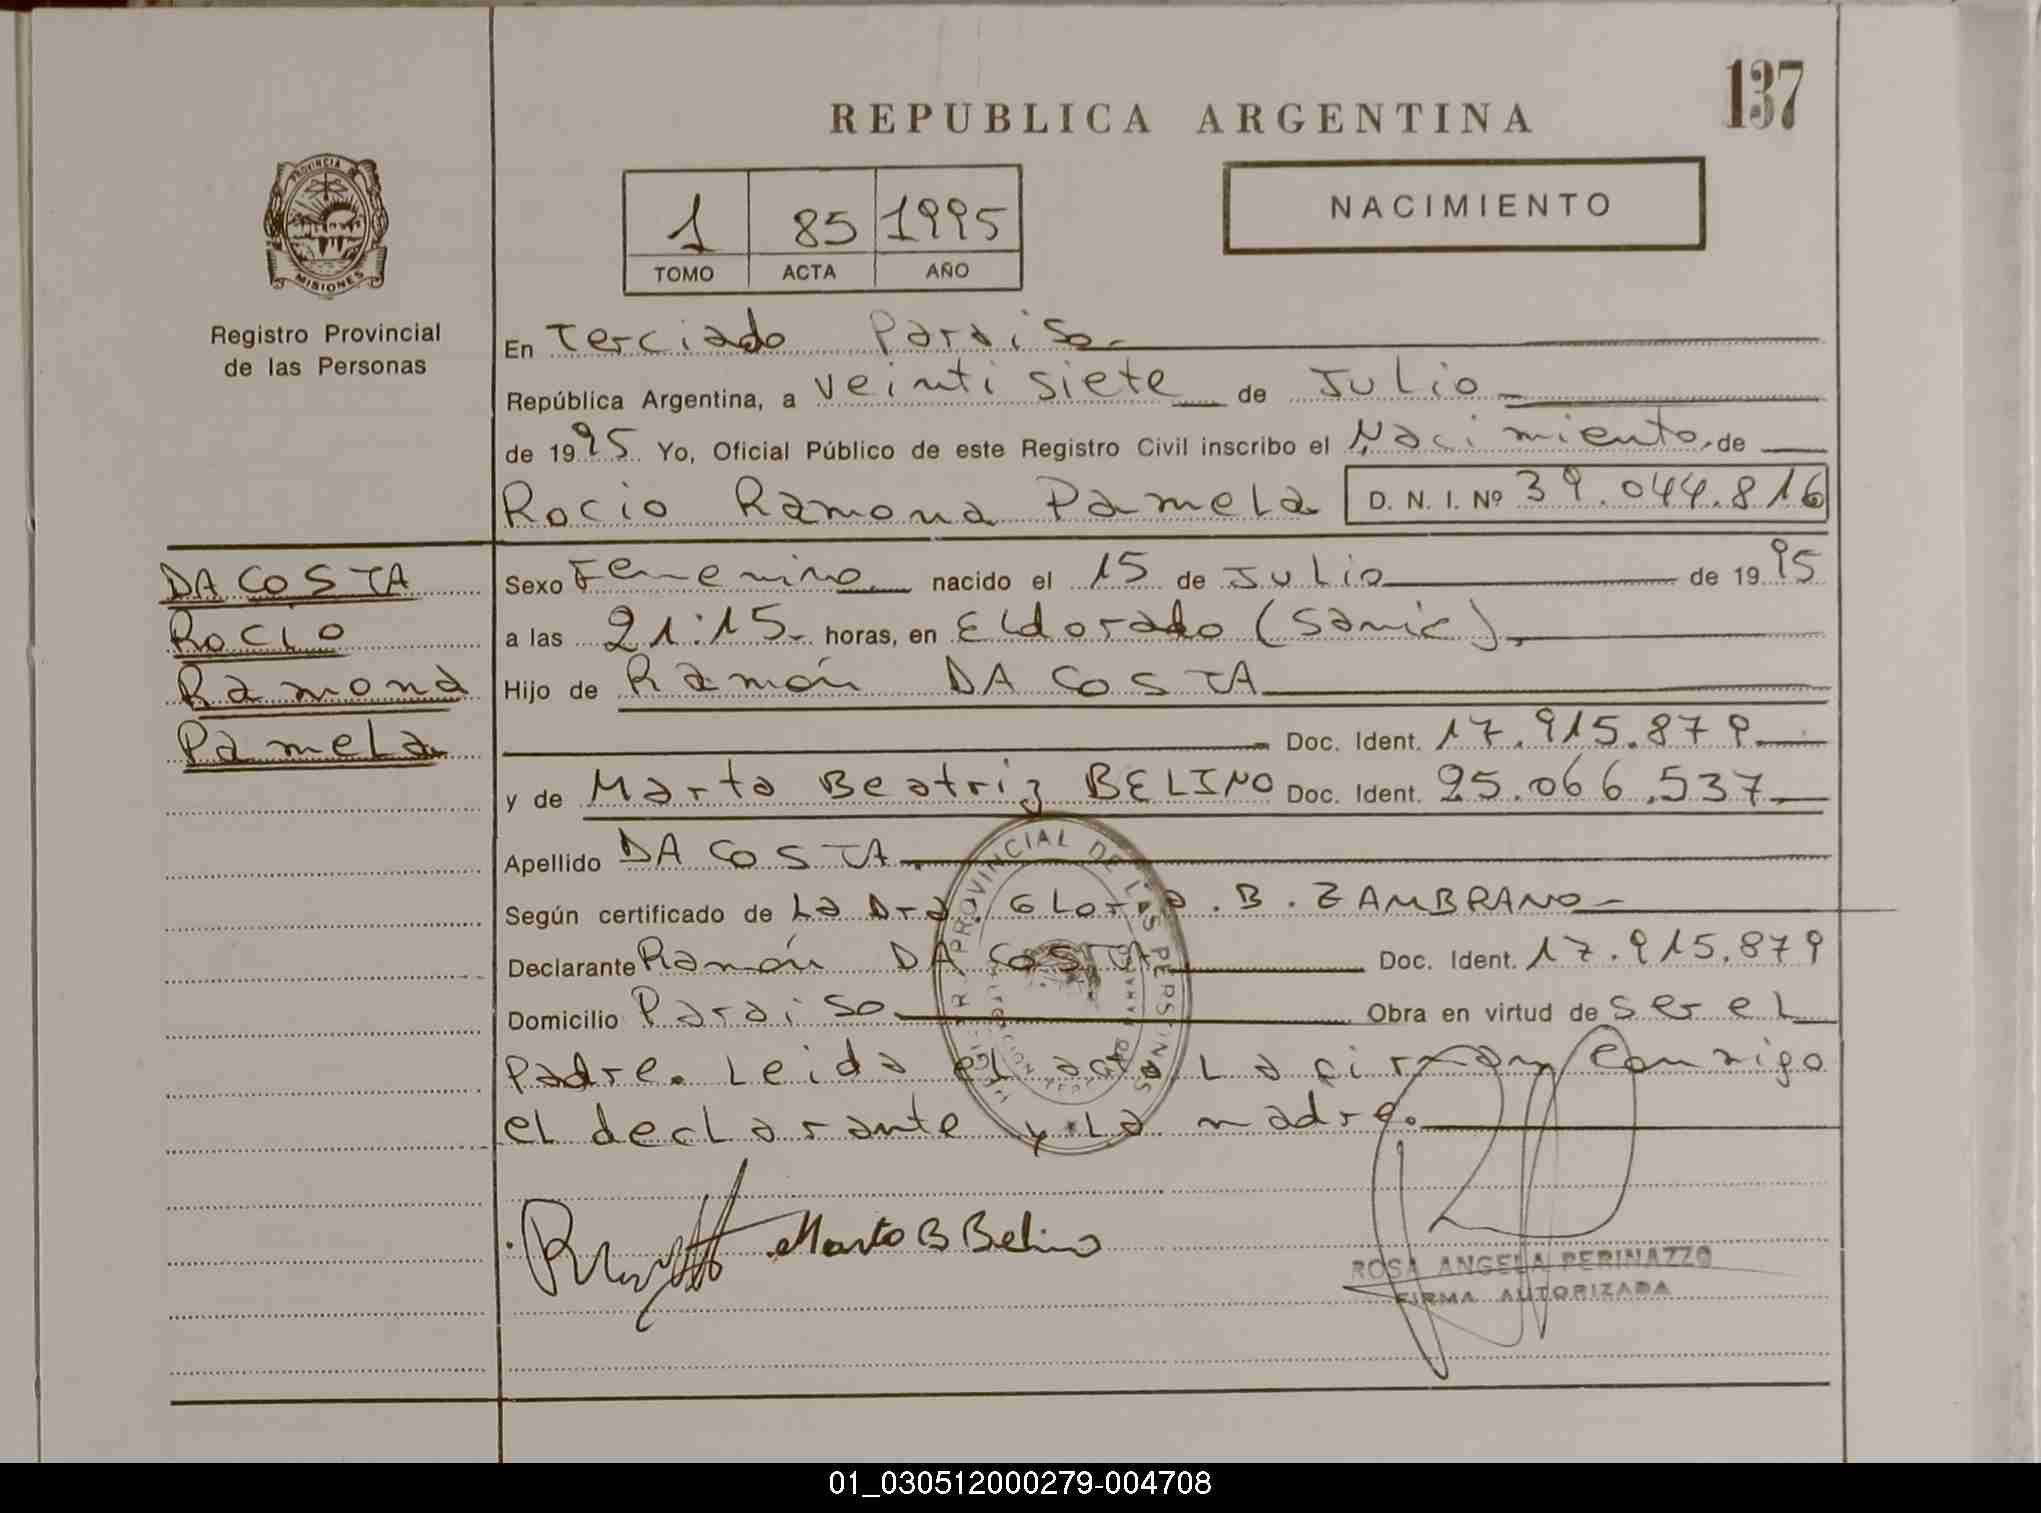 137
REPUBLICA ARGENTINA
PROVINCIA DE MISIONES
Registro Provincial
de las Personas
1 85 1995
TOMO ACTA AÑO
NACIMIENTO
En Terciado Paraiso
República Argentina, a veinti siete de Julio
de 1995 Yo, Oficial Público de este Registro Civil inscribo el Nacimiento de
Rocio Ramona Pamela D. N. I. Nº 39.044.816
DA COSTA
Rocio
Ramona
Pamela
Sexo Femenino nacido el 15 de Julio de 1995
a las 21:15 horas, en Eldorado (Samic)
Hijo de Ramón DA COSTA
Doc. Ident. 17.915.879
y de Marta Beatriz BELINO Doc. Ident. 25.066.537
Apellido DA COSTA
Según certificado de La Dra. Gloria. B. ZAMBRANO
Declarante Ramón DA COSTA Doc. Ident. 17.915.879
Domicilio Paraiso Obra en virtud de ser el
Padre. Leida el acta La firman conmigo
el declarante y La madre.
Marta B Belino
ROSA ANGELA PERINAZZO
FIRMA AUTORIZADA
01_030512000279-004708